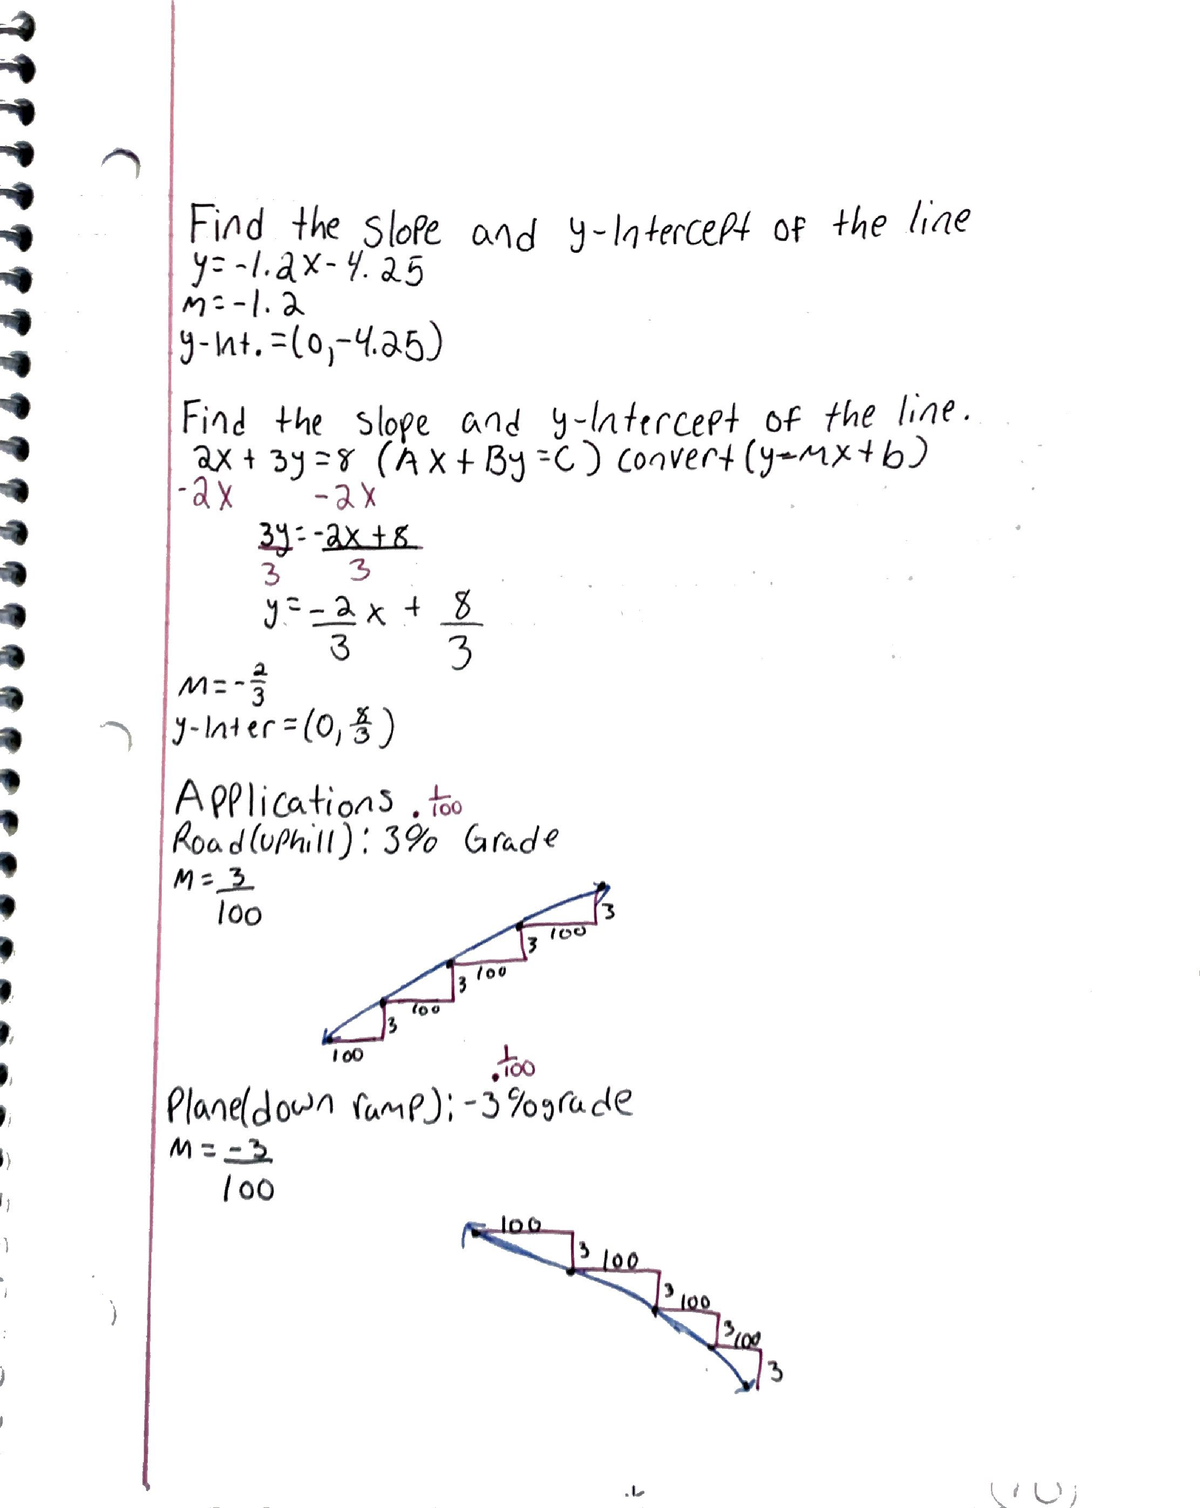 Find the slope and y-Intercept of the line
y=-1.2x-4.25
m=-1.2
y-Int.=(0,-4.25)
Find the slope and y-Intercept of the line.
2x + 3y=8 (Ax+By=C) convert (y=mx+b)
-2x -2x
3y=-2x+8
3 3
y=-2/3 x + 8/3
m=-2/3
y-Inter=(0,8/3)
Applications . 1/100
Road(uphill): 3% Grade
m=3/100
3
100
3
100
3
100
3
100
. 1/100
Plane(down ramp): -3%grade
m=-3/100
100
3 100
3 100
3 100
3